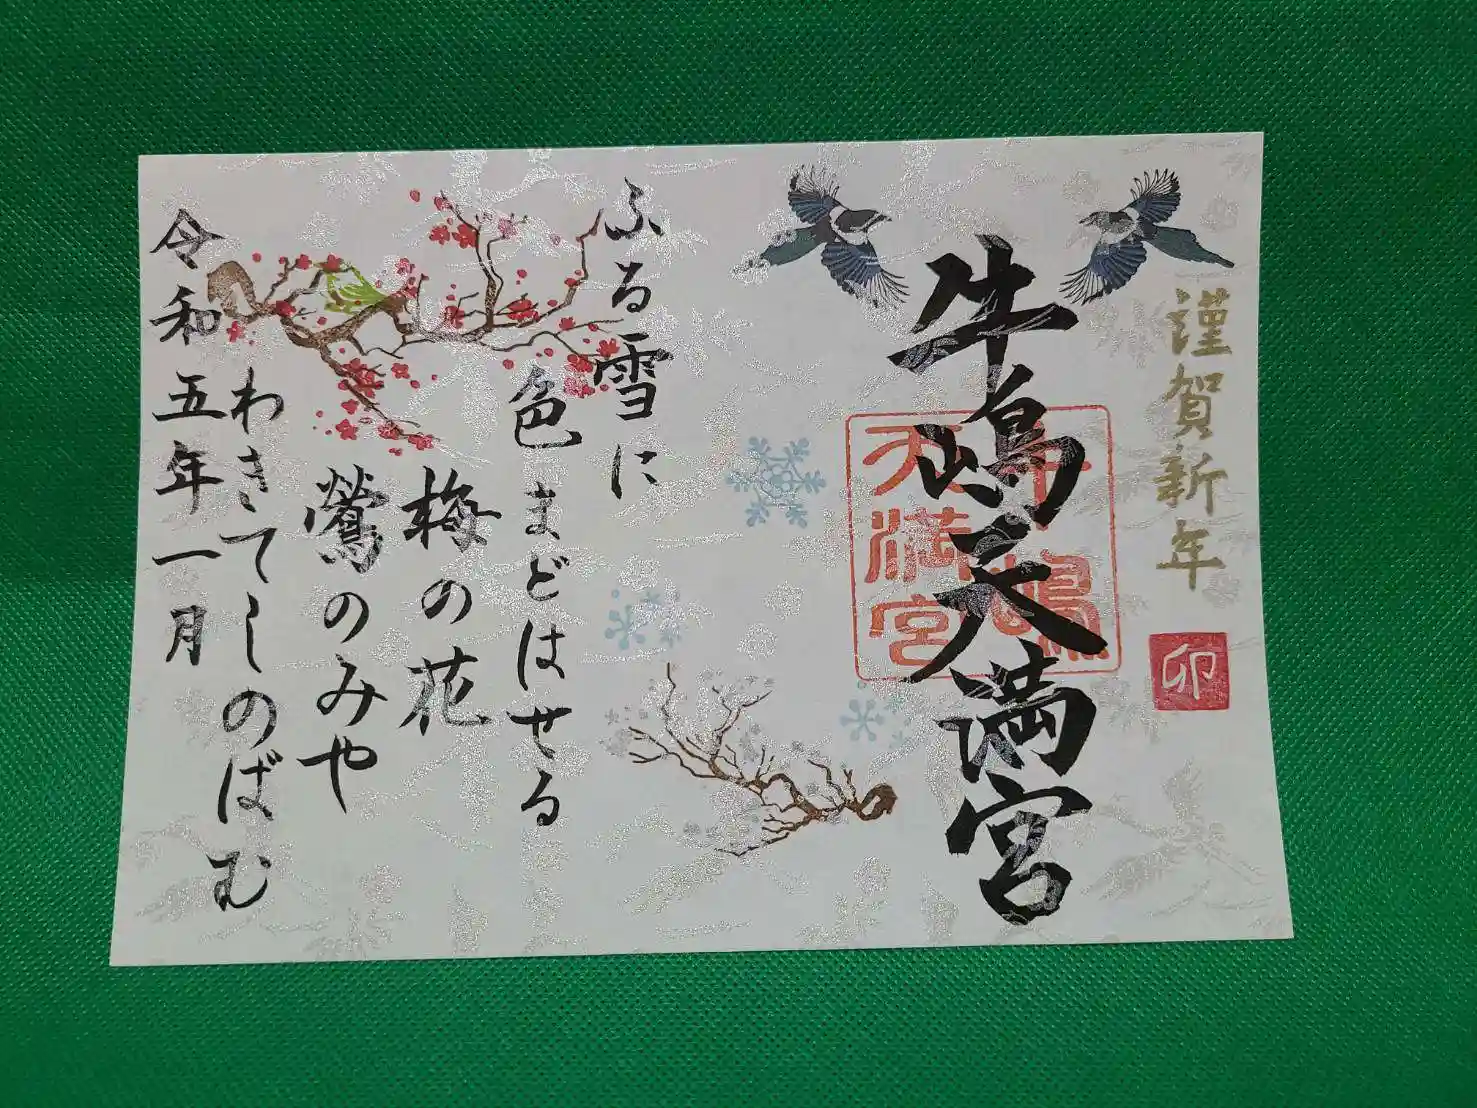 謹賀新年
卯
牛嶋天満宮
牛嶋
天満宮
ふる雪に
色まどはせる
梅の花
鶯のみや
わきてしのばむ
令和五年一月